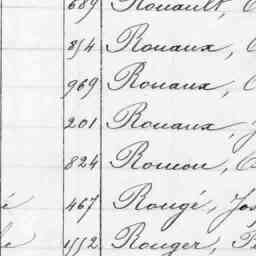 689 Rouault,
814 Rouaux,
969 Rouaux,
201 Rouaux,
824 Rouou,
467 Rougé, Jos
1552 Rouger,